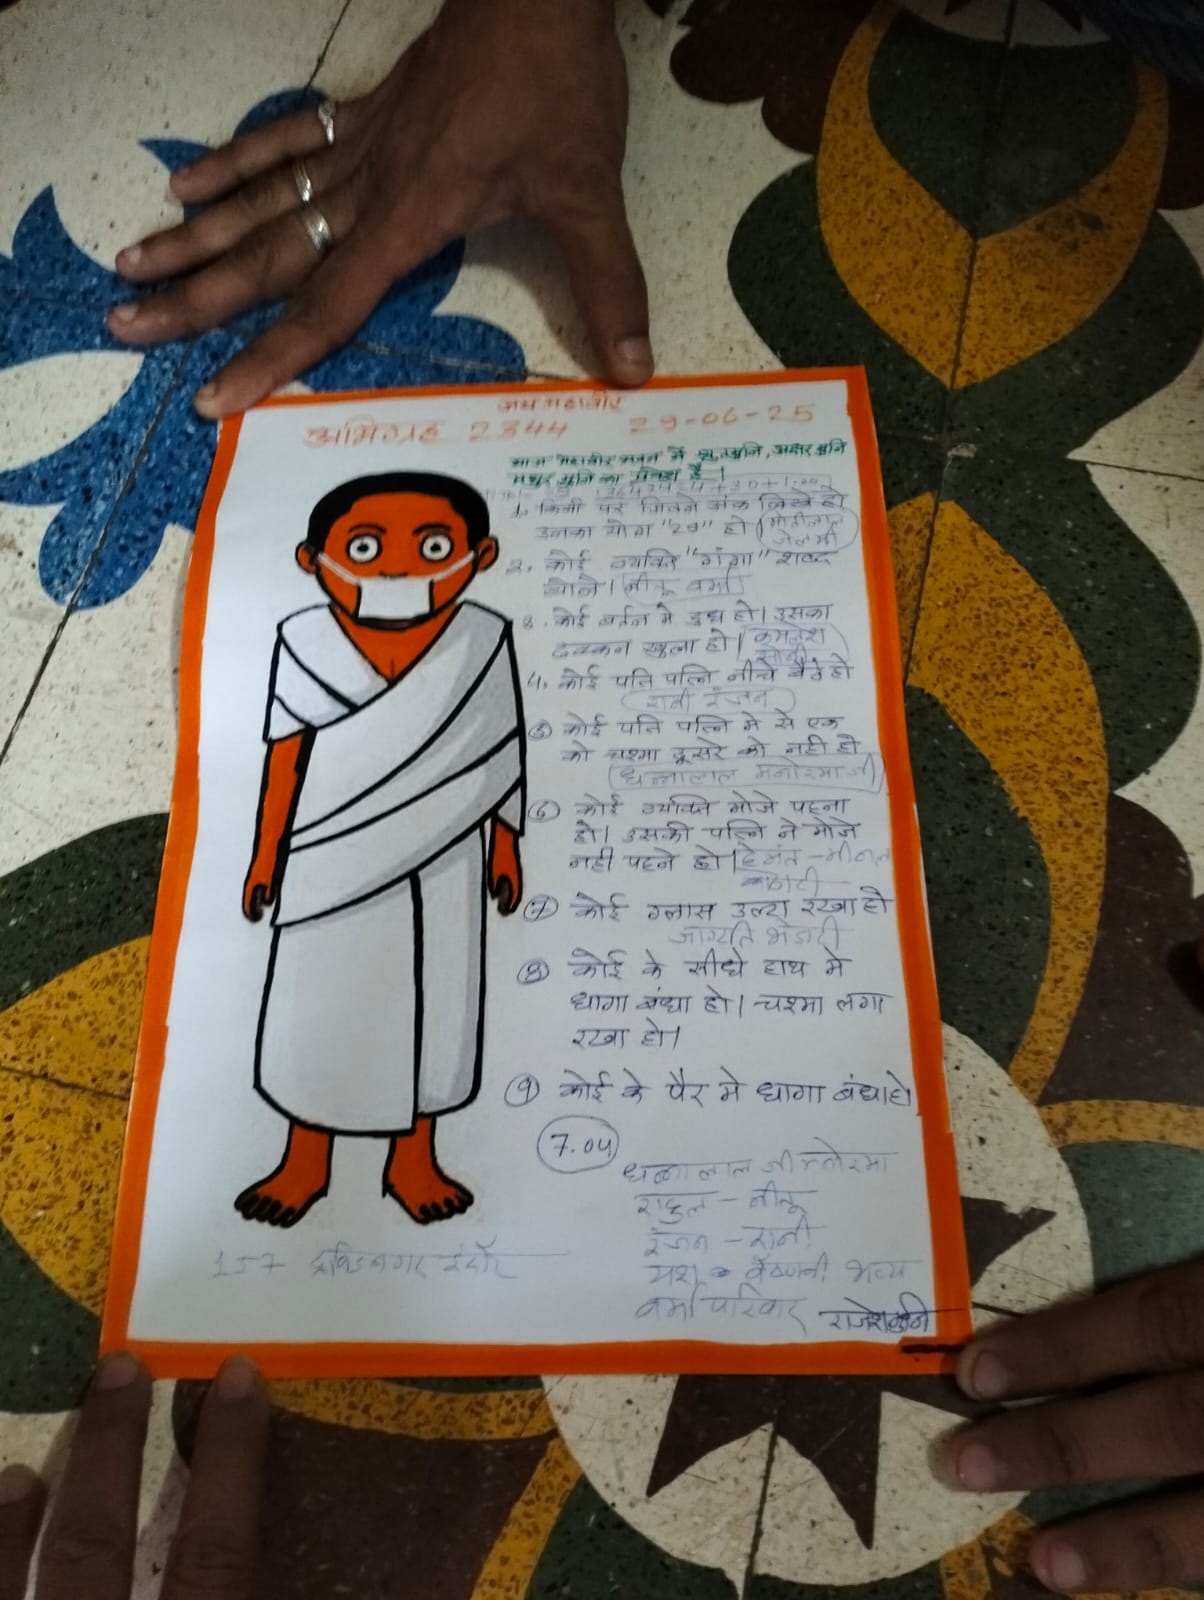 जय महावीर
अभिग्रह 2344 29-06-25
आज महावीर भवन में मुनि, अक्षर मुनि
मधुर मुनि का प्रवेश है।
1. किसी पर जितने अंक लिखे हो
उनका योग "29" हो (मोतीलाल
2. कोई व्यक्ति "गंगा" शब्द
बोले। नीतू वर्मा
3. कोई बर्तन मे दुध हो। उसका
ढक्कन खुला हो। कमलेश
सोनी
4. कोई पति पत्नि नीचे बैठे हो
(रानी रंजन)
5 कोई पति पत्नि मे से एक
को चश्मा दूसरे को नही हो
(धन्नालाल मनोरमा जी)
6 कोई व्यक्ति मोजे पहना
हो। उसकी पत्नि ने मोजे
नही पहने हो। हेमंत -
7 कोई ग्लास उल्टा रखा हो
जाग्रति भंडारी
8 कोई के सीधे हाथ मे
धागा बंधा हो। चश्मा लगा
रखा हो।
9 कोई के पैर मे धागा बंधा हो
7.04
धन्नालाल जी मनोरमा
राहुल - नीतू
रंजन - रानी
यश भव्य
वर्मा परिवार राजेश मुनि
157 इंदौर